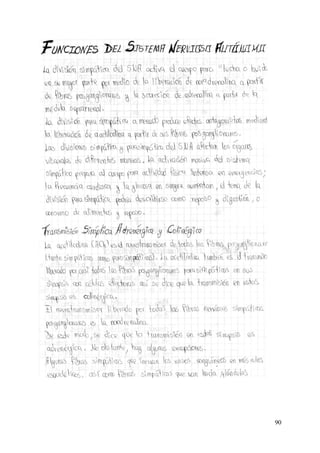 FUNCIONES DEL SISTEMA NERVIOSO AUTÓNOMO
La división simpática del SNA activa el cuerpo para "lucha o huida"
en su mayor parte por medio de la liberación de noradrenalina a partir
de fibras posganglionares y la secreción de adrenalina a partir de la
médula suprarrenal.
La división parasimpática a menudo produce efectos antagonistas mediante
la liberación de acetilcolina a partir de sus fibras posganglionares.
Las divisiones simpática y parasimpática del SNA afectan los órganos
viscerales de diferentes maneras. La activación masiva del sistema
simpático prepara al cuerpo para actividad física intensa en emergencias;
la frecuencia cardiaca y la glucosa en sangre aumentan, el tono de la
división parasimpática podría describirse como reposo y digestión, o
consumo de alimentos y reposo.
Transmisión Simpática Adrenérgica y Colinérgica
La acetilcolina (ACh) es el neurotransmisor de todas las fibras preganglionares
(tanto simpáticas como parasimpáticas). La acetilcolina también es el transmisor
liberado por casi todas las fibras posganglionares parasimpáticas en sus
sinapsis con células efectoras así se dice que la transmisión en estas
sinapsis es colinérgica.
El neurotransmisor liberado por todas las fibras nerviosas simpáticas
posganglionares es la noradrenalina.
De este modo, se dice que la transmisión en estas sinapsis es
adrenérgica. No obstante, hay algunas excepciones.
Algunas fibras simpáticas que inervan los vasos sanguíneos en músculos
esqueléticos, así como fibras simpáticas que van hacia glándulas
90